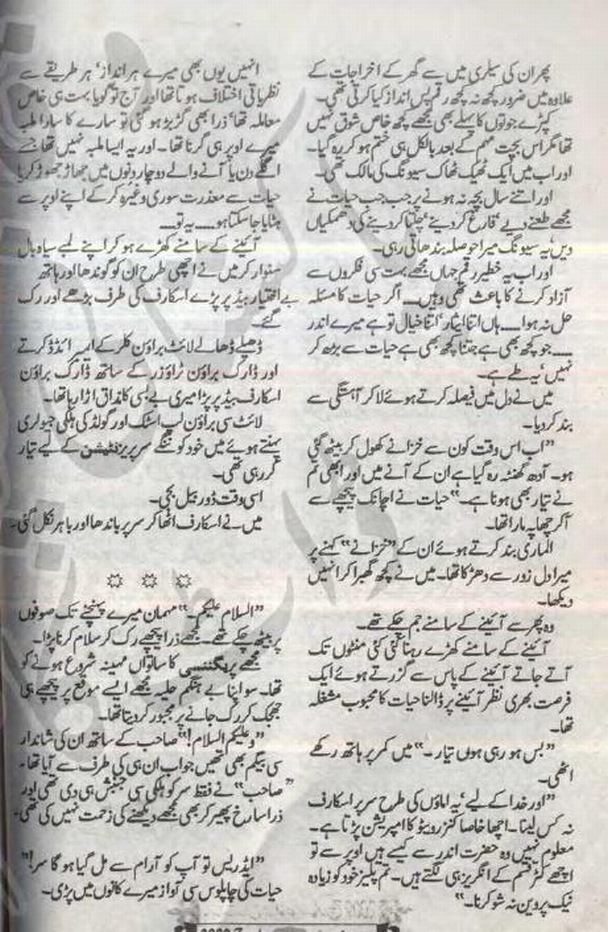 پھر ان کی سیلری میں سے گھر کے اخراجات کے
علاوہ میں ضرور کچھ نہ کچھ رقم پس انداز کیا کرتی تھی۔
کپڑے جوتوں کا پہلے بھی مجھے کچھ خاص شوق نہیں
تھا مگر اس بچت مہم کے بعد بالکل ہی ختم ہو کر رہ گیا۔
اور اب میں ایک ٹھیک ٹھاک سیونگ کی مالک تھی۔
اور اتنے سال بچہ نہ ہونے پر جب جب حیات نے
مجھے طعنے دیے‘ فارغ کر دینے‘ چلتا کر دینے کی دھمکیاں
دیں‘ یہ سیونگ میرا حوصلہ بندھاتی رہی۔
اور اب یہ خطیر رقم جہاں مجھے بہت سی فکروں سے
آزاد کرنے کا باعث تھی وہیں.... اگر حیات کا مسئلہ
حل نہ ہوا.... ہاں اتنا ایثار‘ اتنا خیال تو ہے میرے اندر
.... جو کچھ بھی ہے جتنا کچھ بھی ہے حیات سے بڑھ کر
نہیں‘ یہ طے ہے۔
میں نے دل میں فیصلہ کرتے ہوئے لاکر آہستگی سے
بند کر دیا۔
”اب اس وقت کون سے خزانے کھول کر بیٹھ گئی
ہو۔ آدھ گھنٹہ رہ گیا ہے ان کے آنے میں اور ابھی تم
نے تیار بھی ہونا ہے۔“ حیات نے اچانک پیچھے سے
آ کر چھاپہ مارا تھا۔
الماری بند کرتے ہوئے ان کے ”خزانے“ کہنے پر
میرا دل زور سے دھڑکا تھا۔ میں نے کچھ گھبرا کر انہیں
دیکھا۔
وہ پھر سے آئینے کے سامنے جم چکے تھے۔
آئینے کے سامنے کھڑے رہنا‘ کئی کئی منٹوں تک
آتے جاتے آئینے کے پاس سے گزرتے ہوئے ایک
فرصت بھری نظر آئینے پر ڈالنا حیات کا محبوب مشغلہ
تھا۔
”بس ہو رہی ہوں تیار۔“ میں کمر پر ہاتھ رکھے
اٹھی۔
”اور خدا کے لیے‘ یہ اماؤں کی طرح سر پر اسکارف
نہ کس لینا۔ اچھا خاصا کنزرویٹو کا امپریشن پڑتا ہے۔
معلوم نہیں وہ حضرت اندر سے کیسے ہیں اوپر سے تو
اچھے کٹر قسم کے انگریز ہی لگتے ہیں۔ تم پلیز خود کو زیادہ
نیک پروین نہ شو کرنا۔“
انہیں یوں بھی میرے ہر انداز‘ ہر طریقے سے
نظریاتی اختلاف ہوتا تھا اور آج تو گویا بہت ہی خاص
معاملہ تھا‘ ذرا بھی گڑبڑ ہو گئی تو سارے کا سارا ملبہ
میرے اوپر ہی گرنا تھا۔ اور یہ ایسا ملبہ نہیں تھا جسے
اگلے دن یا آنے والے دو چار دنوں میں جھاڑ جھوڑ کر یا
حیات سے معذرت سوری وغیرہ کر کے اپنے اوپر سے
ہٹایا جا سکتا ہو.... یہ تو....
آئینے کے سامنے کھڑے ہو کر اپنے لمبے سیاہ بال
سنوار کر میں نے اچھی طرح ان کو گوندھا اور ہاتھ
بے اختیار بیڈ پر پڑے اسکارف کی طرف بڑھے اور رک
گئے۔
ڈھیلے ڈھالے لائٹ براؤن کلر کے ایمبرائڈڈ کرتے
اور ڈارک براؤن ٹراؤزر کے ساتھ ڈارک براؤن
اسکارف بیڈ پر پڑا میری بے بسی کا مذاق اڑا رہا تھا۔
لائٹ سی براؤن لپ اسٹک اور گولڈ کی ہلکی جیولری
پہنتے ہوئے میں خود کو ننگے سر پریزنٹیشن کے لیے تیار
کر رہی تھی۔
اسی وقت ڈور بیل بجی۔
میں نے اسکارف اٹھا کر سر پر باندھا اور باہر نکل گئی۔
”السلام علیکم۔“ مہمان میرے پہنچنے تک صوفوں
پر بیٹھ چکے تھے۔ مجھے ذرا پیچھے رک کر سلام کرنا پڑا۔
مجھے پریگننسی کا ساتواں مہینہ شروع ہونے کو
تھا۔ سو اپنا بے ہنگم حلیہ مجھے ایسے موقع پر پیچھے ہی
جھجک کر رک جانے پر مجبور کر دیتا تھا۔
”وعلیکم السلام!“ صاحب کے ساتھ ان کی شاندار
سی بیگم بھی تھیں جواب ان ہی کی طرف سے آیا تھا۔
”صاحب“ نے فقط سر کو ہلکی سی جنبش ہی دی تھی اور
ذرا سا رخ پھیر کر بھی مجھے دیکھنے کی زحمت نہیں کی تھی۔
”ایڈریس تو آپ کو آرام سے مل گیا ہو گا سر!“
حیات کی چاپلوس سی آواز میرے کانوں میں پڑی۔